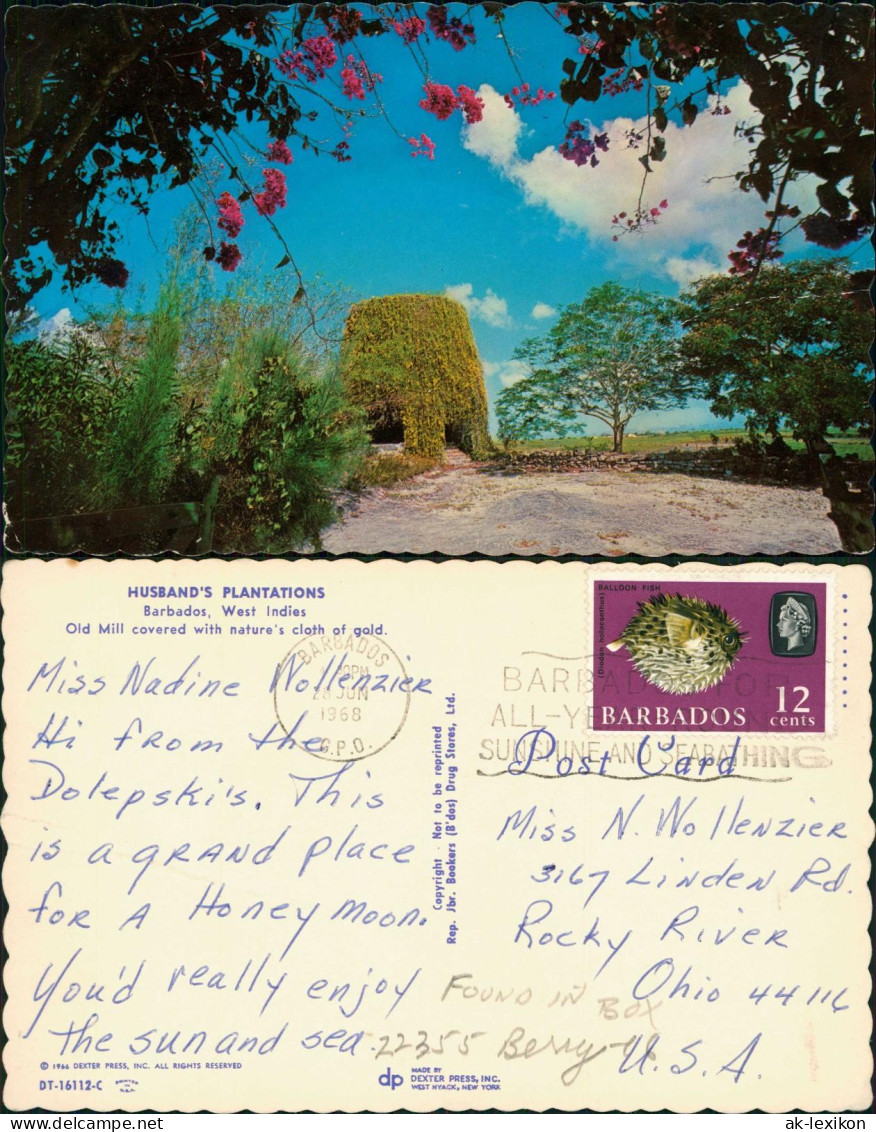 HUSBAND'S PLANTATIONS
Barbados, West Indies
Old Mill covered with nature's cloth of gold.
BARBADOS
PM
28 JUN
1968
G.P.O.
BARBADOS FOR
ALL-YE
SUNSHINE AND SEABATHING
BALLOON FISH
(Diodon holocanthus)
12
cents
BARBADOS
Miss Nadine Wollenzier
Hi from the
Dolepski's. This
is a grand place
for a Honey moon.
You'd really enjoy
the sun and sea.
Copyright · Not to be reprinted
Rep. Jbr. Bookers (B'dos) Drug Stores, Ltd.
Post Card
Miss N. Wollenzier
3167 Linden Rd.
Rocky River
Ohio 44116
U.S.A.
FOUND IN BOX
22355 Berry
© 1966 DEXTER PRESS, INC. ALL RIGHTS RESERVED
DT-16112-C
dp
MADE BY
DEXTER PRESS, INC.
WEST NYACK, NEW YORK
ak-lexikon